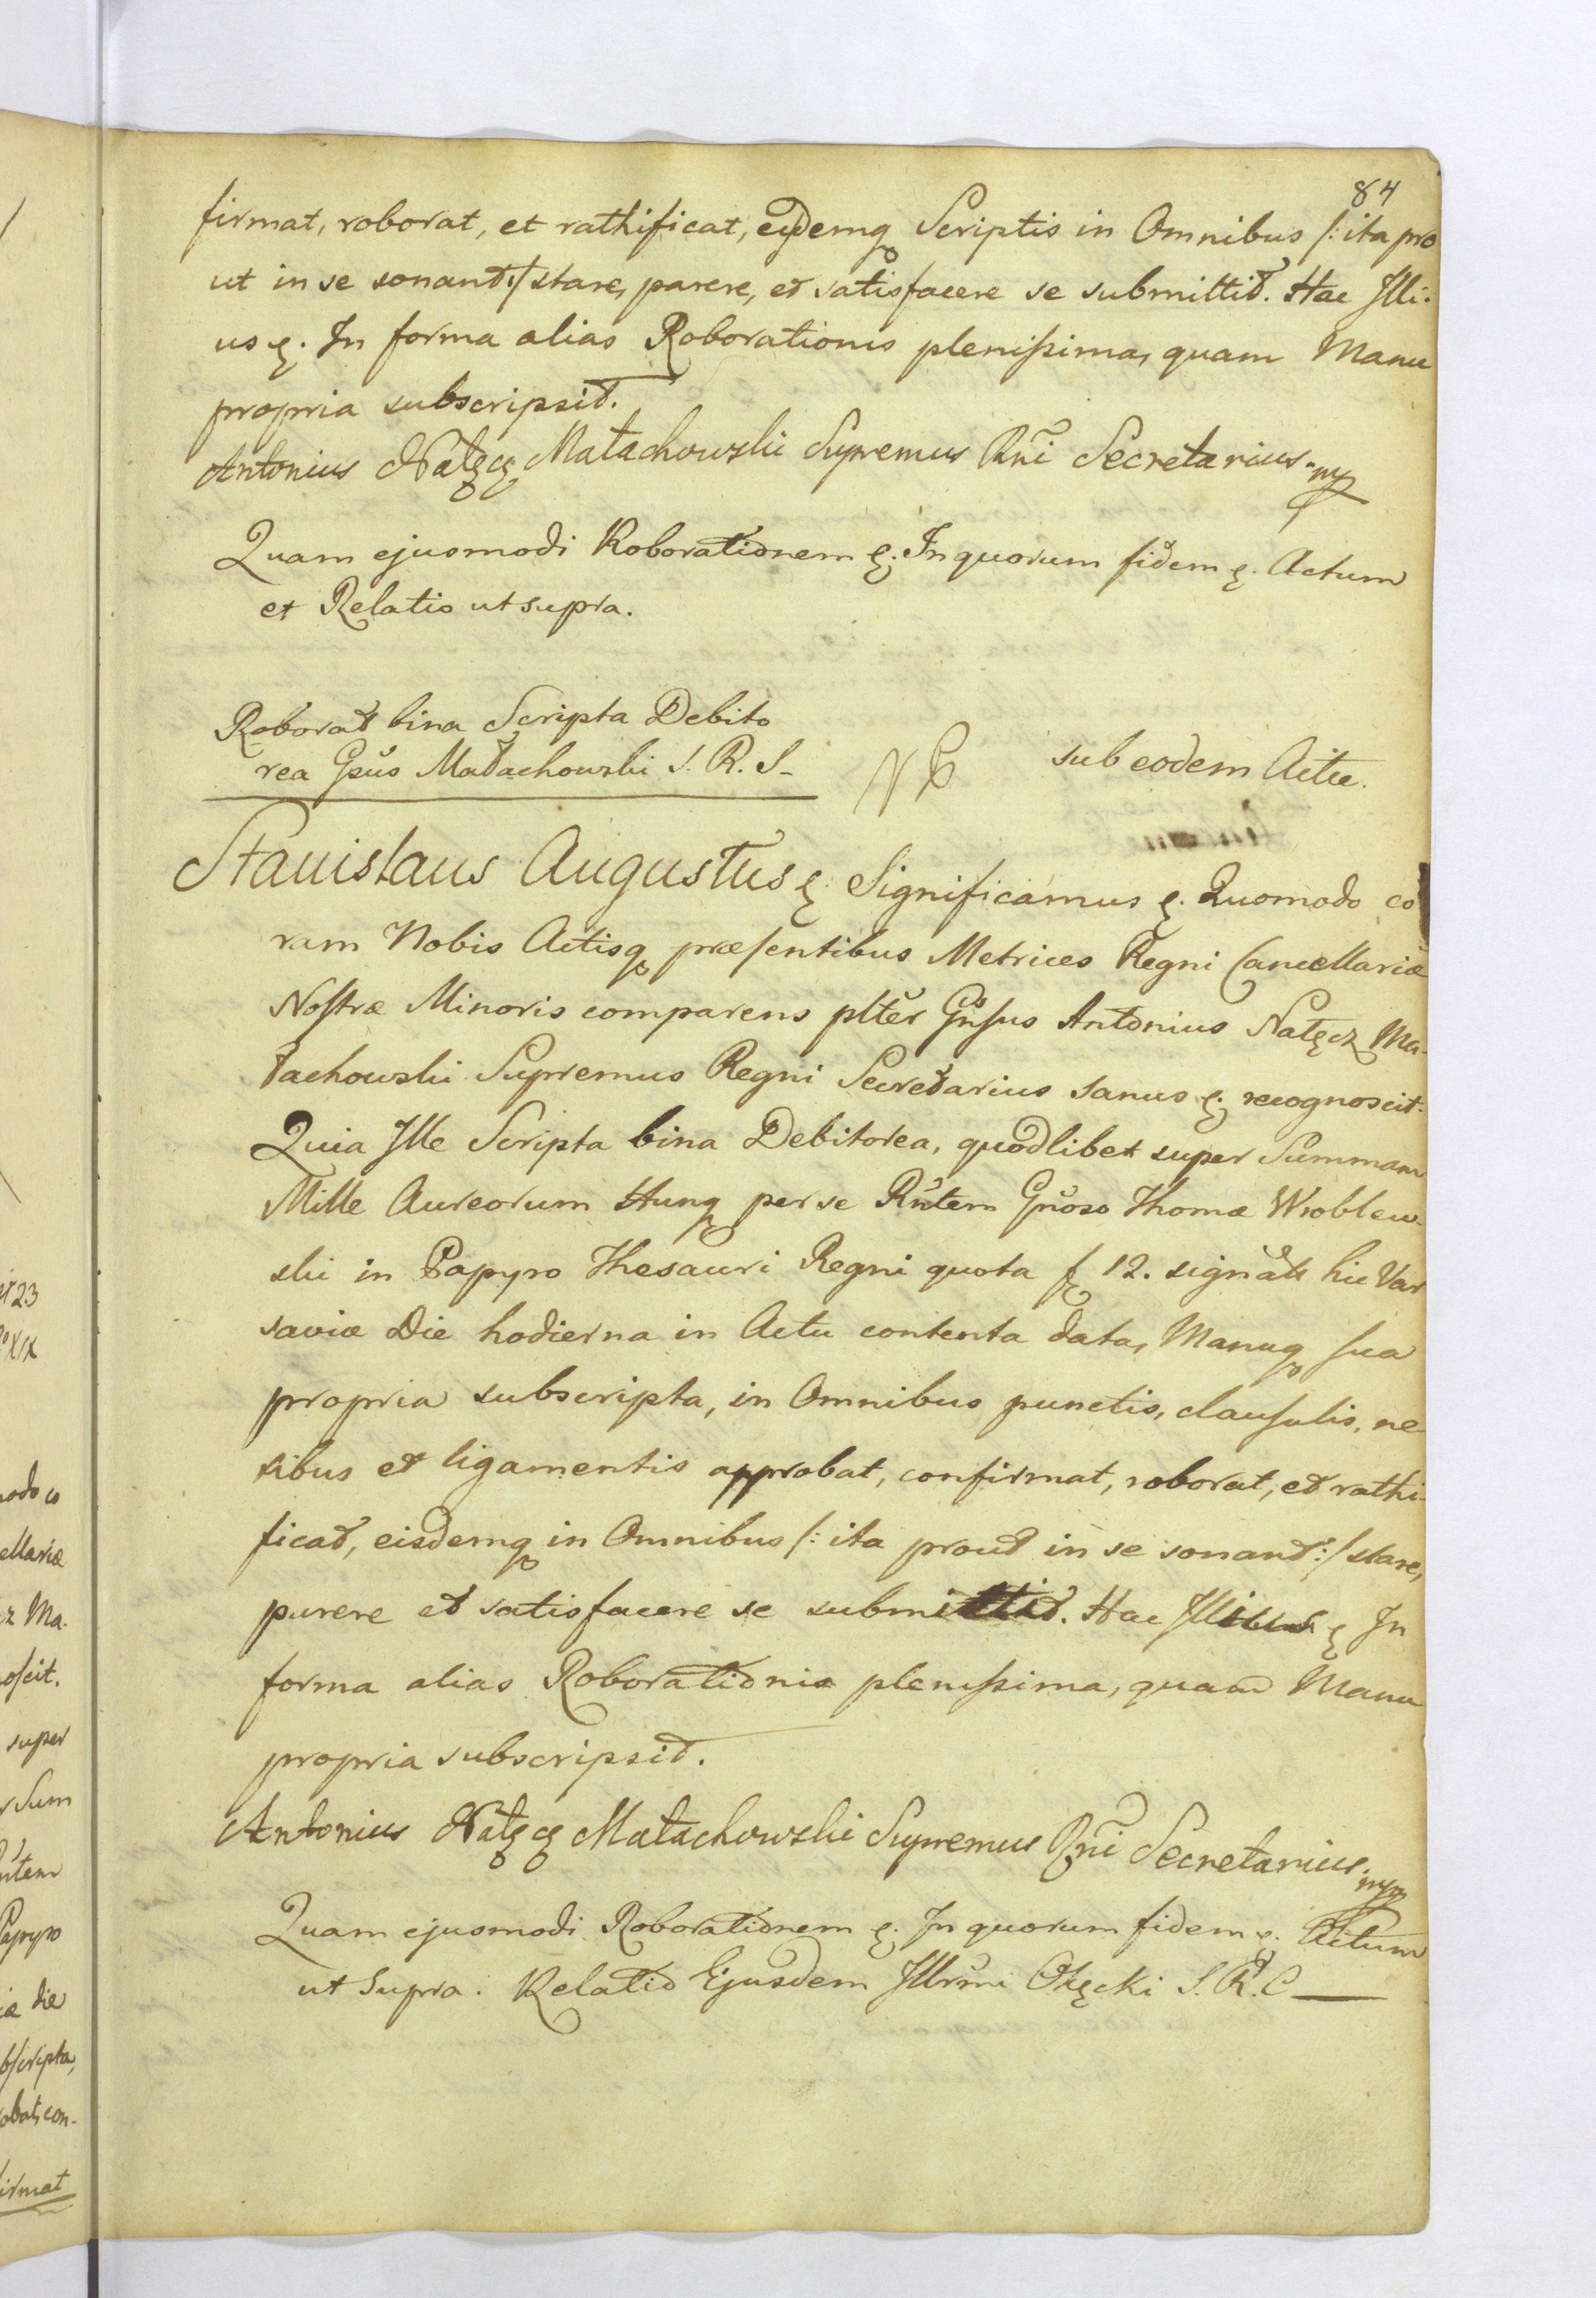 84
firmat, roborat, et rathificat, eisdemq Scriptis in Omnibus /: ita pro
ut in se sonant :/ stare, parere, et satisfacere se submittit. Hac Illi-
us ę. In forma alias Roborationis plenissima, quam Manu
propria subscripsit.
Antonius Nałęcz Małachowski Supremus Rni Secretarius mp
Quam ejusmodi Roborationem ę. In quorum fidem ę. Actum
et Relatio ut supra.
Roborat bina Scripta Debito
rea Gsus Małachowski S. R. S.
sub eodem Actu.
Stanislaus Augustus ę. Significamus ę. Quomodo co
ram Nobis Actisq præsentibus Metrices Regni Cancellariæ
Nostræ Minoris comparens plter Gnsus Antonius Nałęcz Ma-
łachowski Supremus Regni Secretarius sanus ę. recognoscit.
Quia Ille Scripta bina Debitorea, quodlibet super Summam
Mille Aureorum Hung per se Rntem Gnoso Thomæ Wroblew-
ski in Papyro Thesauri Regni quota f 12. signat hic Var
saviæ Die hodierna in Actu contenta data, Manuq sua
propria subscripta, in Omnibus punctis, clausulis, ne-
xibus et ligamentis approbat, confirmat, roborat, et rathi-
ficat, eisdemq in Omnibus /: ita prout in se sonant :/ stare,
parere et satisfacere se submittit. Hac Illius ę In
forma alias Roborationis plenissima, quam Manu
propria subscripsit.
Antonius Nałęcz Małachowski Supremus Rni Secretarius mp
Quam ejusmodi Roborationem ę. In quorum fidem ę. Actum
ut Supra. Relatio Ejusdem Illrmi Okęcki S. R. C